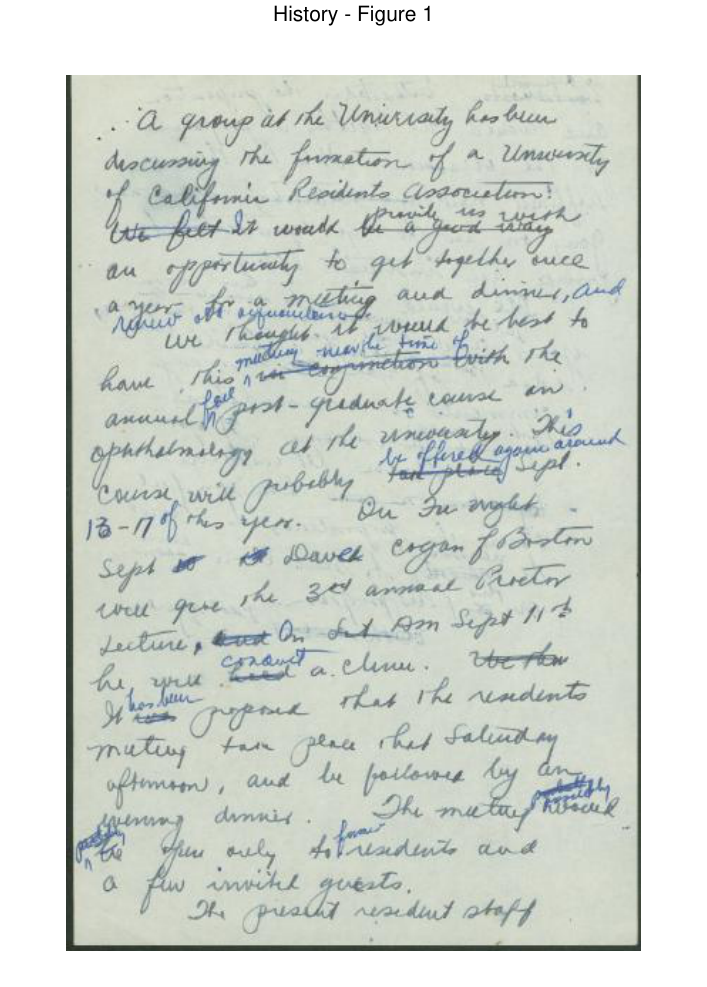 History - Figure 1
A group at the University has been
discussing the formation of a University
of California Residents Association.
We felt It would be a good way provide us with
an opportunity to get together once
a year for a meeting and dinner, and
renew old acquaintances.
We thought it would be best to
have this in conjunction with the meeting near the time of
annual fall post-graduate course in
ophthalmology at the university. This
course will probably take place be offered again around Sept.
13-17 of this year. On Fri night
Sept David Cogan of Boston
will give the 3rd annual Proctor
Lecture, and On Sat AM Sept 11th
he will conduct a clinic. We
It was has been proposed that the residents
meeting take place that Saturday
afternoon, and be followed by an
evening dinner. The meeting would
be open only to former residents and
a few invited guests.
The present resident staff